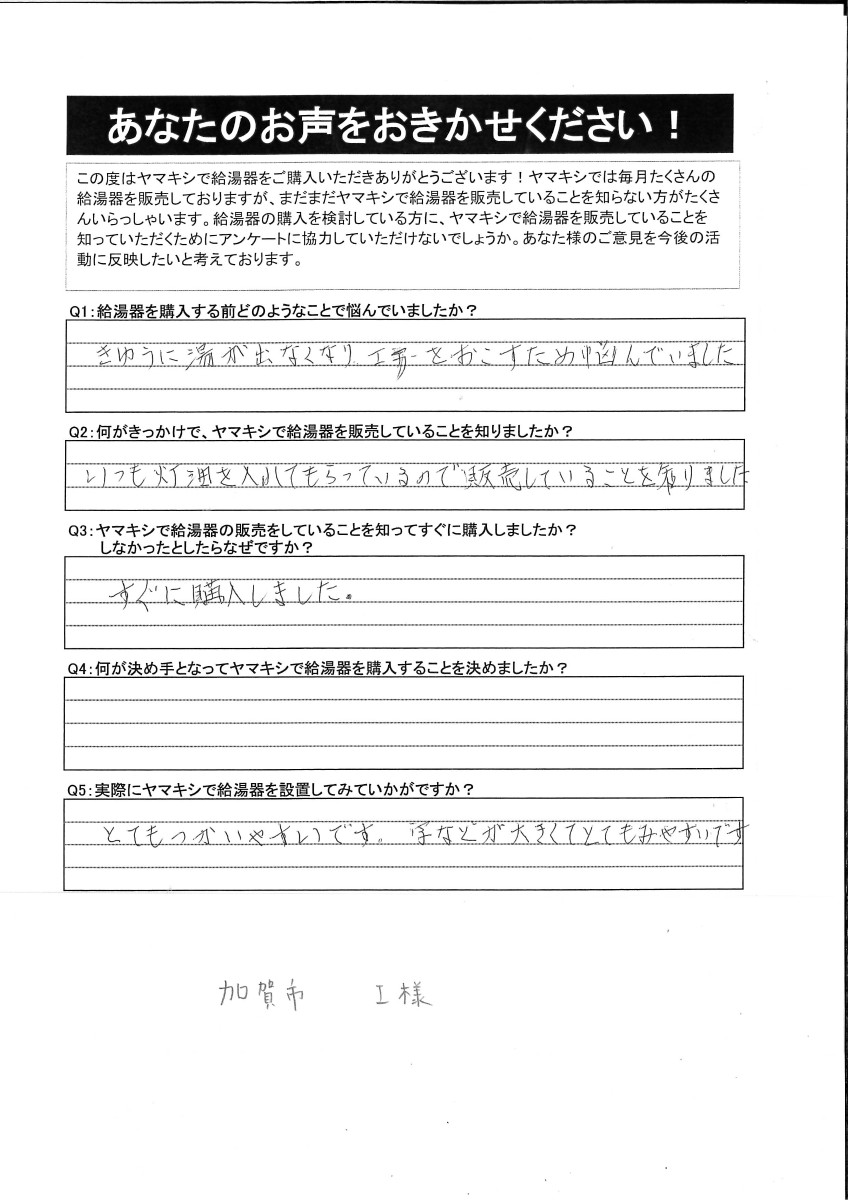 あなたのお声をおきかせください！
この度はヤマキシで給湯器をご購入いただきありがとうございます！ヤマキシでは毎月たくさんの
給湯器を販売しておりますが、まだまだヤマキシで給湯器を販売していることを知らない方がたくさ
んいらっしゃいます。給湯器の購入を検討している方に、ヤマキシで給湯器を販売していることを
知っていただくためにアンケートに協力していただけないでしょうか。あなた様のご意見を今後の活
動に反映したいと考えております。
Q1：給湯器を購入する前どのようなことで悩んでいましたか？
きゆうに湯が出なくなり 工事をおこすため悩んでいました
Q2：何がきっかけで、ヤマキシで給湯器を販売していることを知りましたか？
いつも灯油を入れてもらっているので販売していることを知りました
Q3：ヤマキシで給湯器の販売をしていることを知ってすぐに購入しましたか？
しなかったとしたらなぜですか？
すぐに購入しました。
Q4：何が決め手となってヤマキシで給湯器を購入することを決めましたか？
Q5：実際にヤマキシで給湯器を設置してみていかがですか？
とてもつかいやすいです。字などが大きくてとてもみやすいです
加賀市 I様